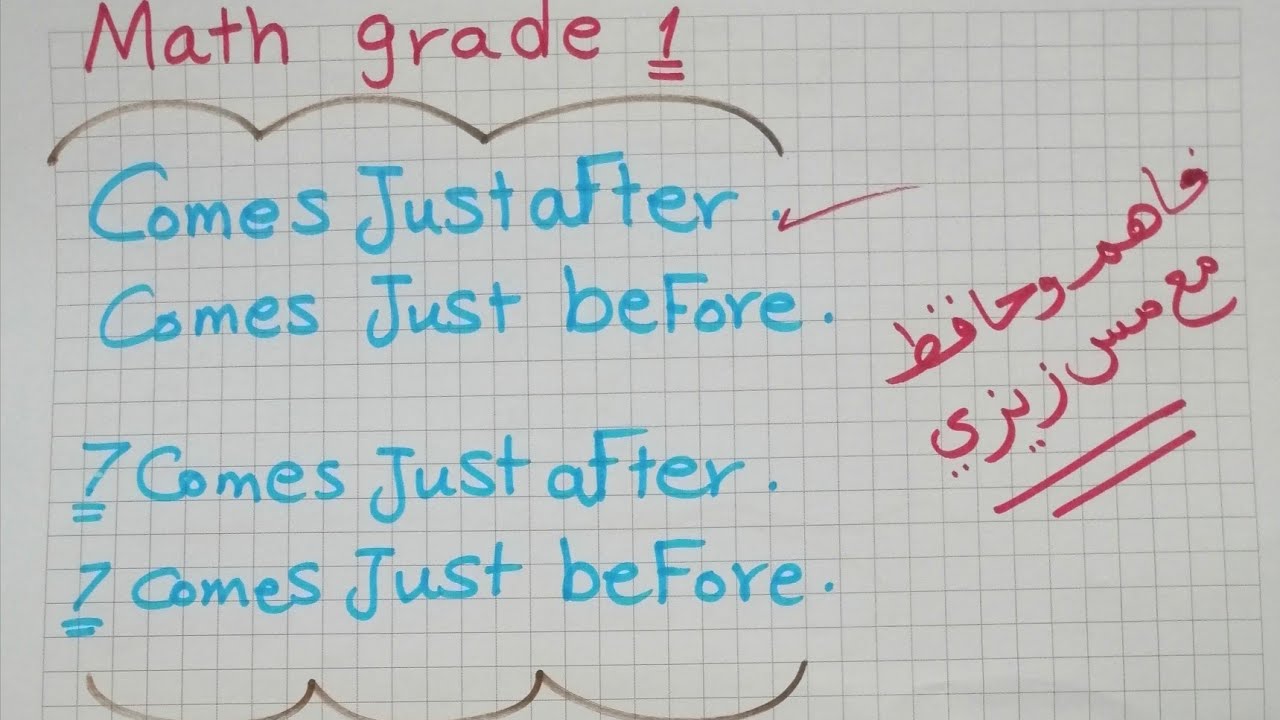 Math grade 1
Comes Just after.
Comes Just before.
7 Comes Just after.
7 Comes Just before.
فاهم وحافظ
مع مس زيزي